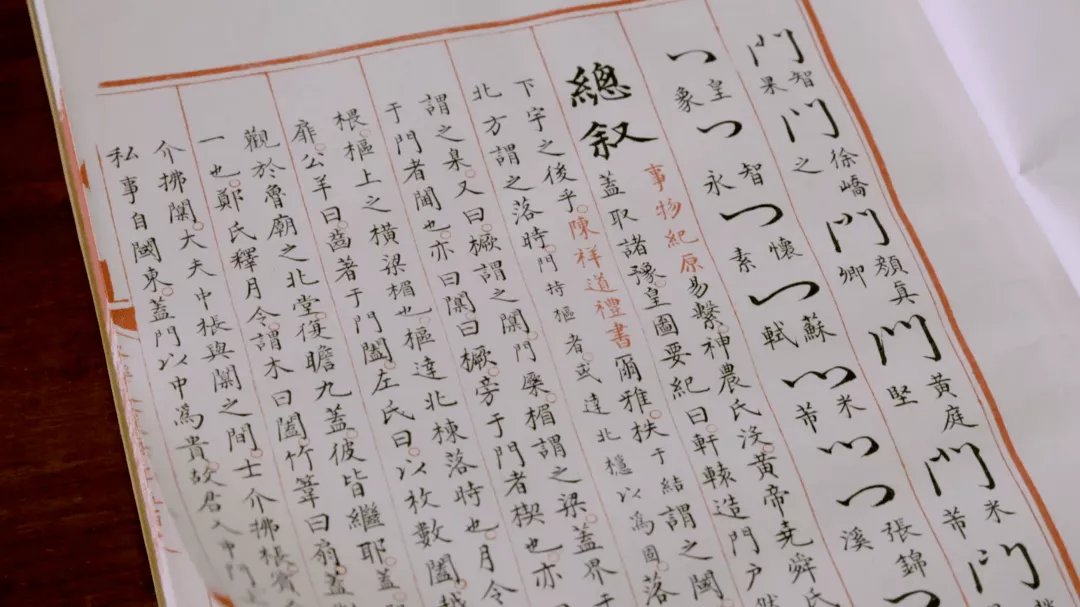 門智果門徐嶠之門顏真卿門黃庭堅門米芾門
門皇象門智永門懷素門蘇軾門米芾門門張錦溪
總叙
事物紀原易繫神農氏沒黃帝堯舜氏
蓋取諸豫皇圖要紀曰軒轅造門戶然
下宇之後乎陳祥道禮書爾雅柣于結謂之閾
北方謂之落時門持樞者或達北檼以為固落
謂之臬又曰橛謂之闑門㮞楣謂之梁蓋界于
于門者閾也亦曰闑曰橛旁于門者楔也亦
棖樞上之橫梁楣也樞達北棟落時也月令
扉公羊曰齒著于門闔左氏曰以枚數闔越
觀於魯廟之北堂復瞻九蓋彼皆繼耶蓋
一也鄭氏釋月令謂木曰闔竹葦曰扇蓋對
介拂闑大夫中棖與闑之間士介拂棖賓
私事自闑東蓋門以中為貴故君入中門上